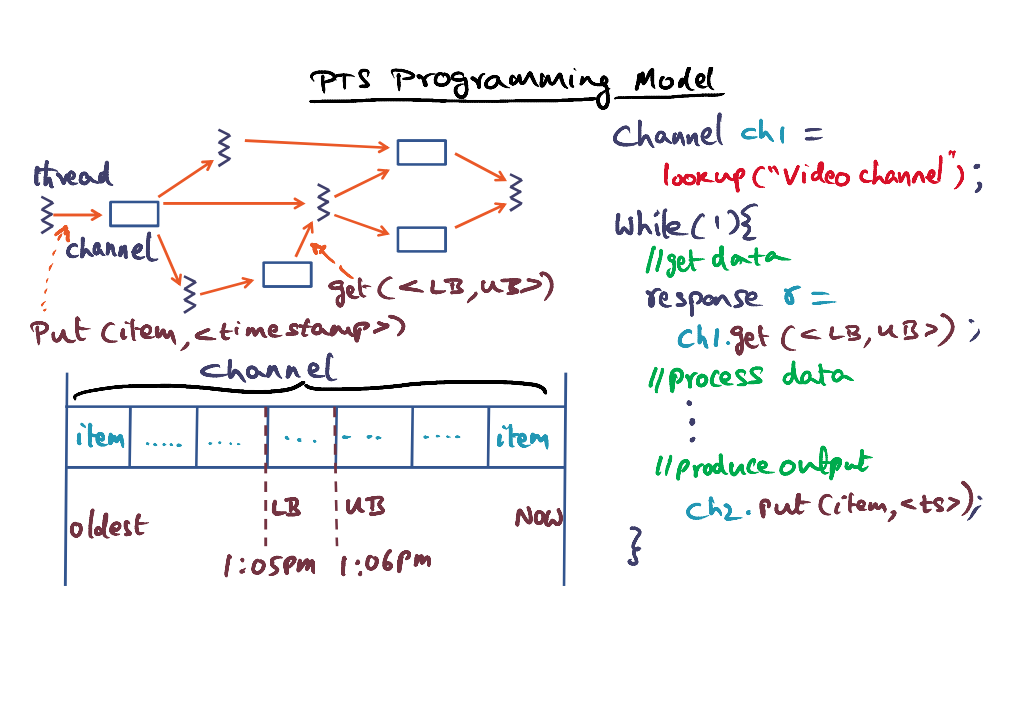 PTS Programming Model
thread
channel
get (<LB, UB>)
Put (item, <timestamp>)
Channel
item ..... .... .... .... .... item
oldest
LB
UB
Now
1:05pm
1:06pm
Channel ch1 =
lookup ("Video channel");
While (1){
//get data
response r =
ch1.get (<LB, UB>);
//Process data
//Produce output
ch2.put (item, <ts>);
}